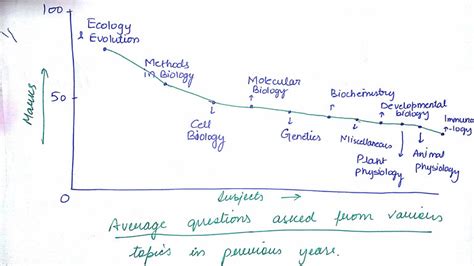 100
Ecology
& Evolution
Methods
in Biology
Molecular
Biology
Biochemistry
Developmental
biology
Immuno
-logy
Marks
50
Cell
Biology
Genetics
Miscellaneous
Plant
physiology
Animal
physiology
0
Subjects
Average questions asked from various
topics in pervious years.